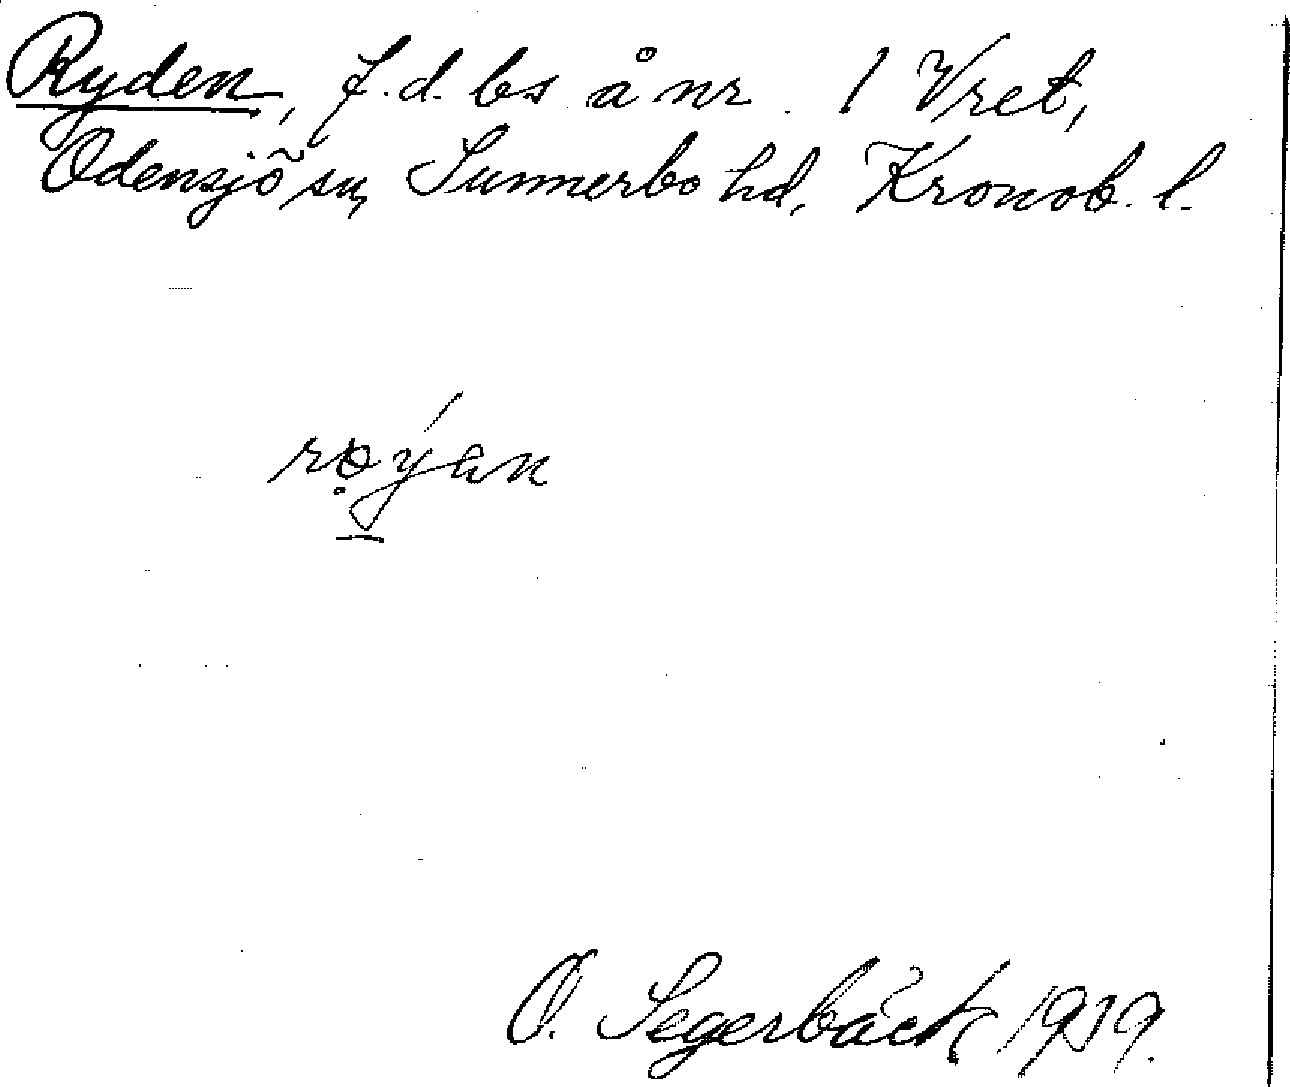 Ryden, f.d. bs å nr. 1 Vret,
Odensjö sn, Sunnerbo hd, Kronob. l.
O. Segerbäck 1919.